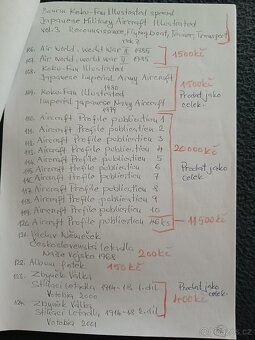 Bunrin Koku-Fan Illustrated special
Japanese Military Aircraft Illustrated
vol. 3 Reconnaissance, Flying boat, Trainer, Transport
106. Air World, World War II 1985
107. Air World, World War II 1985
1500Kč
108. Koku-Fan Illustrated
Japanese Imperial Army Aircraft
1980
109. Koku-Fan Illustrated
Imperial Japanese Navy Aircraft
1979
1500Kč
Prodat jako
celek.
110. Aircraft Profile publication 1
111. Aircraft Profile publication 2
112. Aircraft Profile publication 3
113. Aircraft Profile publication 4
114. Aircraft Profile publication 5
115. Aircraft Profile publication 6
116. Aircraft Profile publication 7
117. Aircraft Profile publication 8
118. Aircraft Profile publication 9
119. Aircraft Profile publication 10
20000Kč
Prodat jako
celek.
120. Aircraft Profile publication 46 ks
11500Kč
121. Václav Němeček
Československá letadla
Naše vojsko 1968
200Kč
122. Album fotek
150Kč
123. Zbyněk Válka
Stíhací letadla 1914-18 1.díl
Votobia 2000
124. Zbyněk Válka
Stíhací letadla 1914-18 2.díl
Votobia 2001
Prodat jako
celek
400Kč